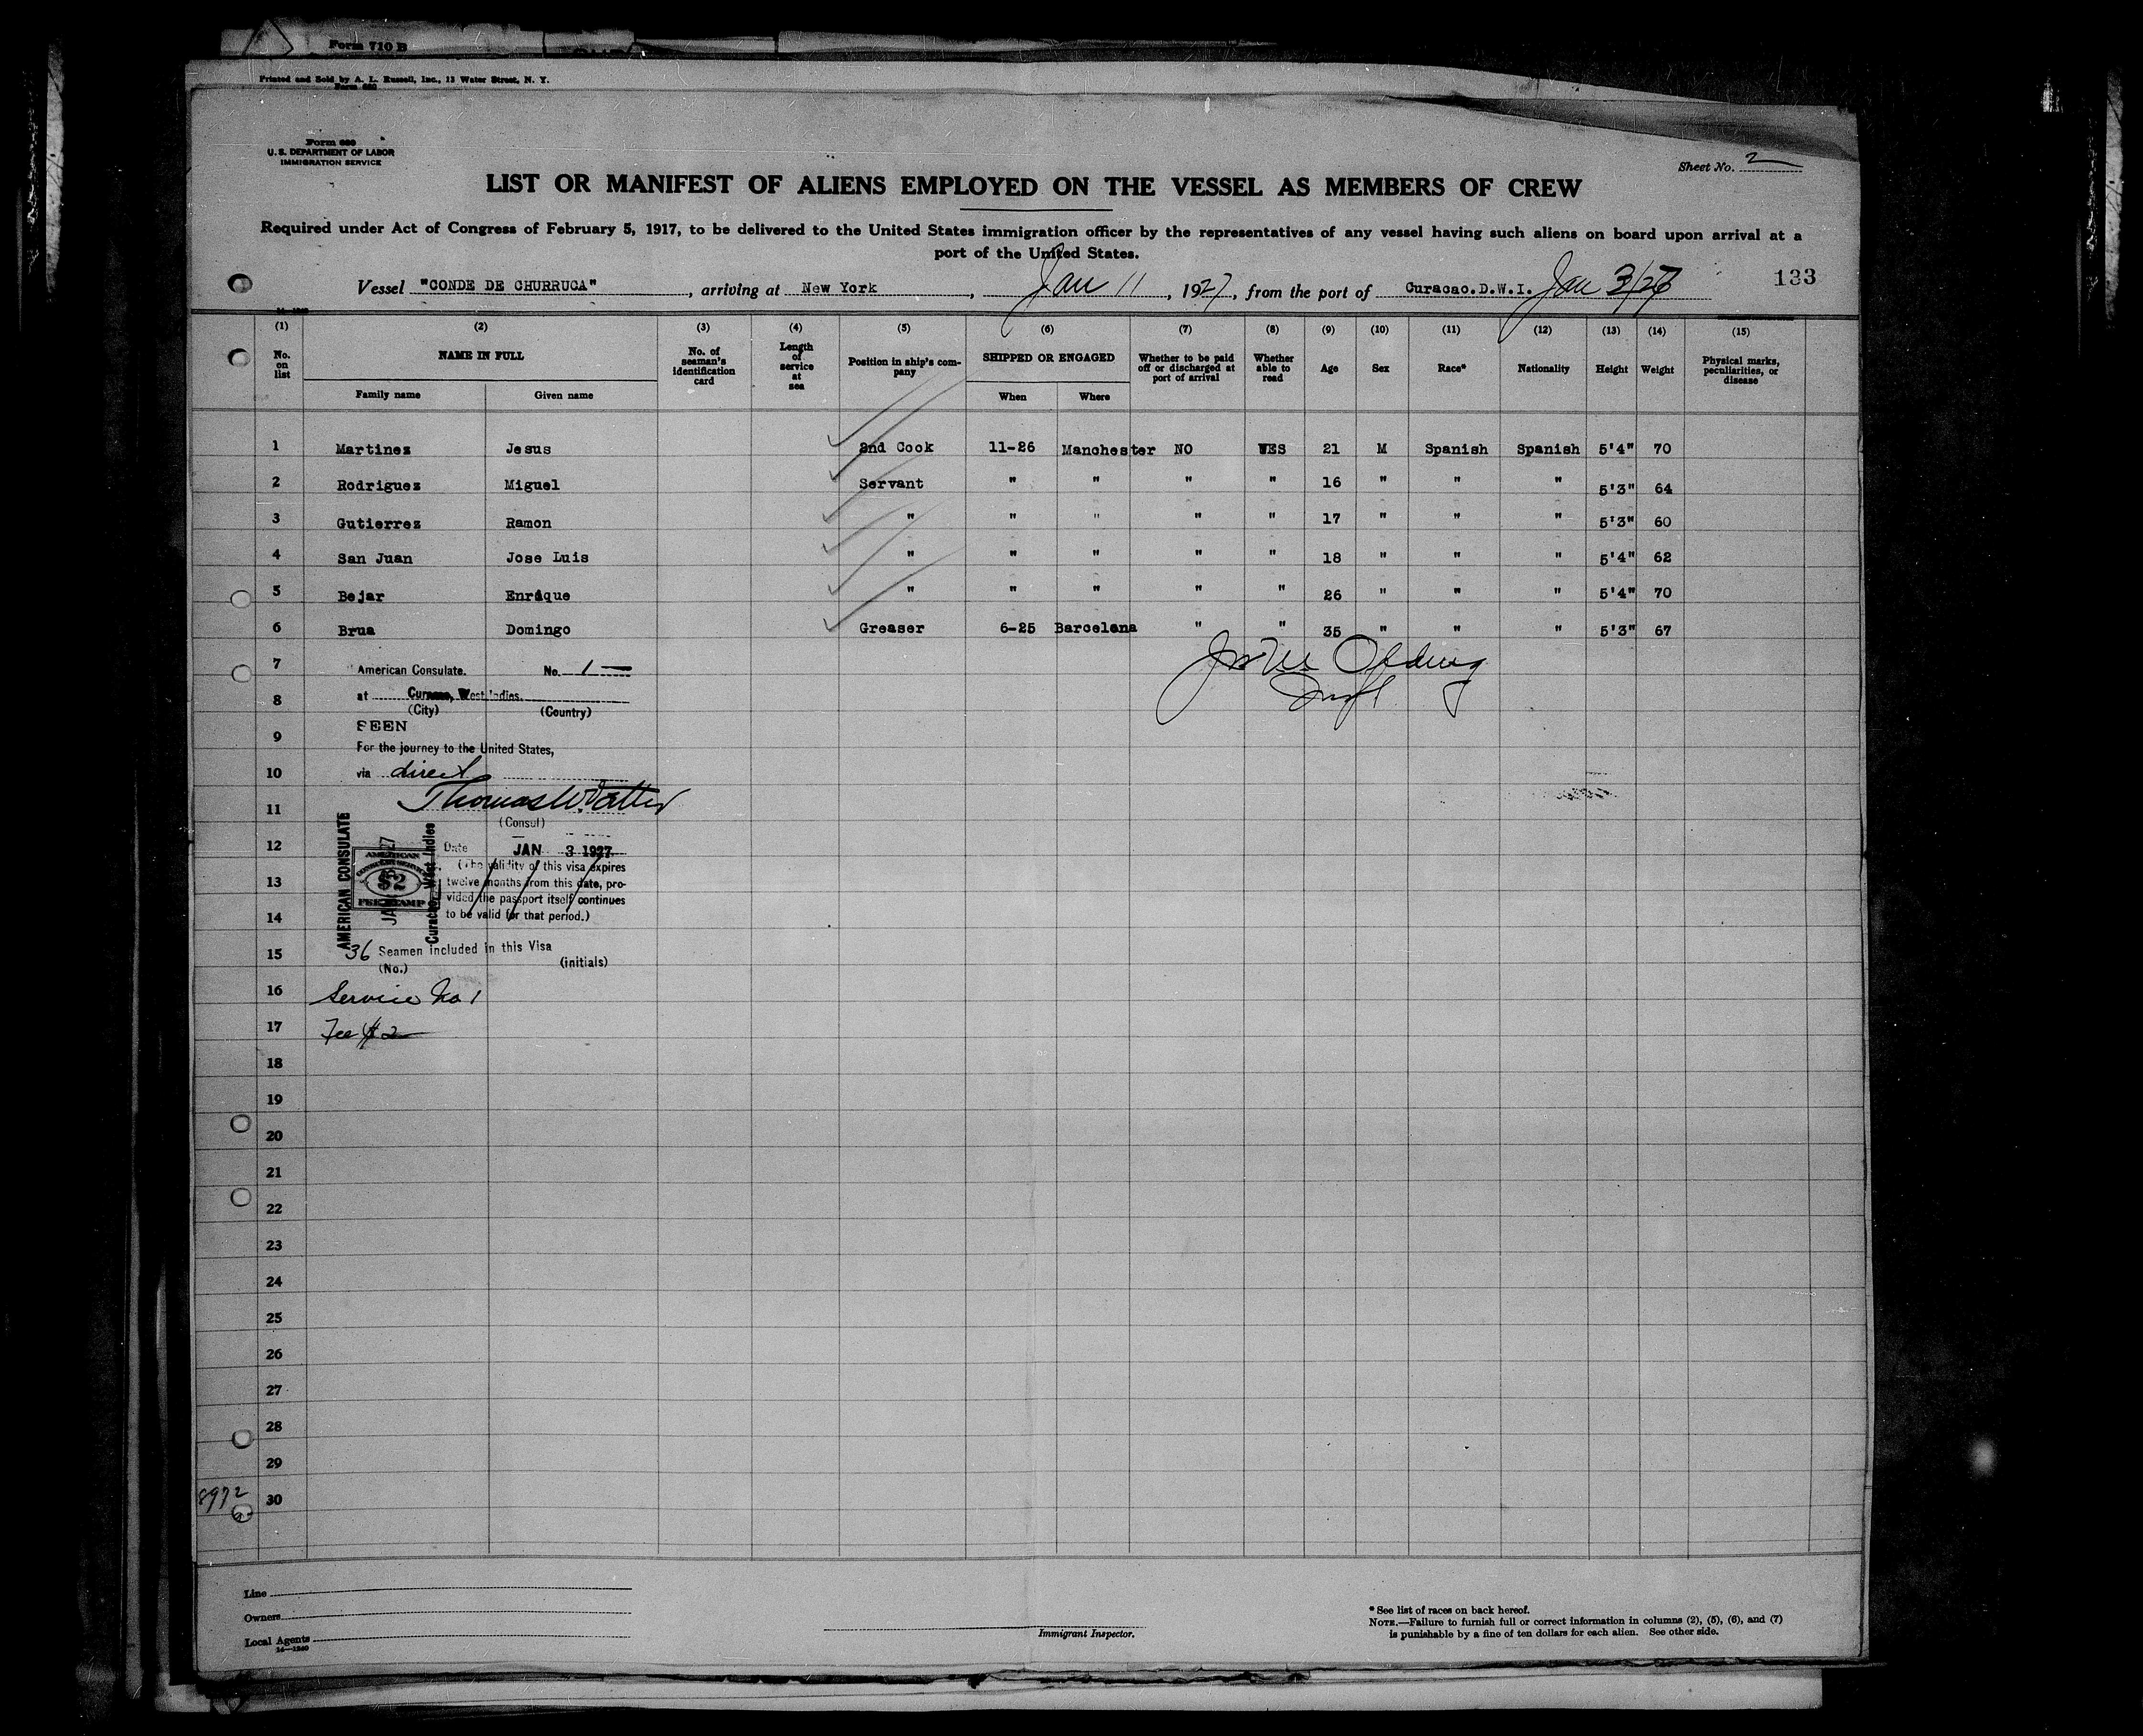 Form 710 B
Printed and Sold by A. L. Russell, Inc., 12 Water Street, N. Y.
Form 680
Form 689
U. S. DEPARTMENT OF LABOR
IMMIGRATION SERVICE
Sheet No. 2
LIST OR MANIFEST OF ALIENS EMPLOYED ON THE VESSEL AS MEMBERS OF CREW
Required under Act of Congress of February 5, 1917, to be delivered to the United States immigration officer by the representatives of any vessel having such aliens on board upon arrival at a
port of the United States.
Vessel "CONDE DE CHURRUCA", arriving at New York, Jan 11, 1927, from the port of Curacao.D.W.I. Jan 3/27
133
(1) (2) (3) (4) (5) (6) (7) (8) (9) (10) (11) (12) (13) (14) (15)
No. on list NAME IN FULL No. of seaman's identification card Length of service at sea Position in ship's company SHIPPED OR ENGAGED Whether to be paid off or discharged at port of arrival Whether able to read Age Sex Race* Nationality Height Weight Physical marks, peculiarities, or disease
Family name Given name When Where
1 Martinez Jesus 2nd Cook 11-26 Manchester NO YES 21 M Spanish Spanish 5'4" 70
2 Rodriguez Miguel Servant " " " " 16 " " " 5'3" 64
3 Gutierrez Ramon " " " " " 17 " " " 5'3" 60
4 San Juan Jose Luis " " " " " 18 " " " 5'4" 62
5 Bejar Enrique " " " " " 26 " " " 5'4" 70
6 Brua Domingo Greaser 6-25 Barcelona " " 35 " " " 5'3" 67
7 American Consulate. No. 1
8 at Curacao, West Indies.
(City) (Country)
SEEN
9 For the journey to the United States,
10 via direct
11 Thomas W.
(Consul)
12 Date JAN 3 1927
(The validity of this visa expires
13 twelve months from this date, pro-
vided the passport itself continues
14 to be valid for that period.)
AMERICAN CONSULATE
Curacao, West Indies
AMERICAN
CONSULAR SERVICE
$2
FEE STAMP
15 36 Seamen included in this Visa
(No.) (initials)
16 Service No 1
17 Fee $2
18
19
20
21
22
23
24
25
26
27
28
29
30
8972
Line
Owners
Local Agents
14—1240
Immigrant Inspector.
* See list of races on back hereof.
NOTE.—Failure to furnish full or correct information in columns (2), (5), (6), and (7)
is punishable by a fine of ten dollars for each alien. See other side.